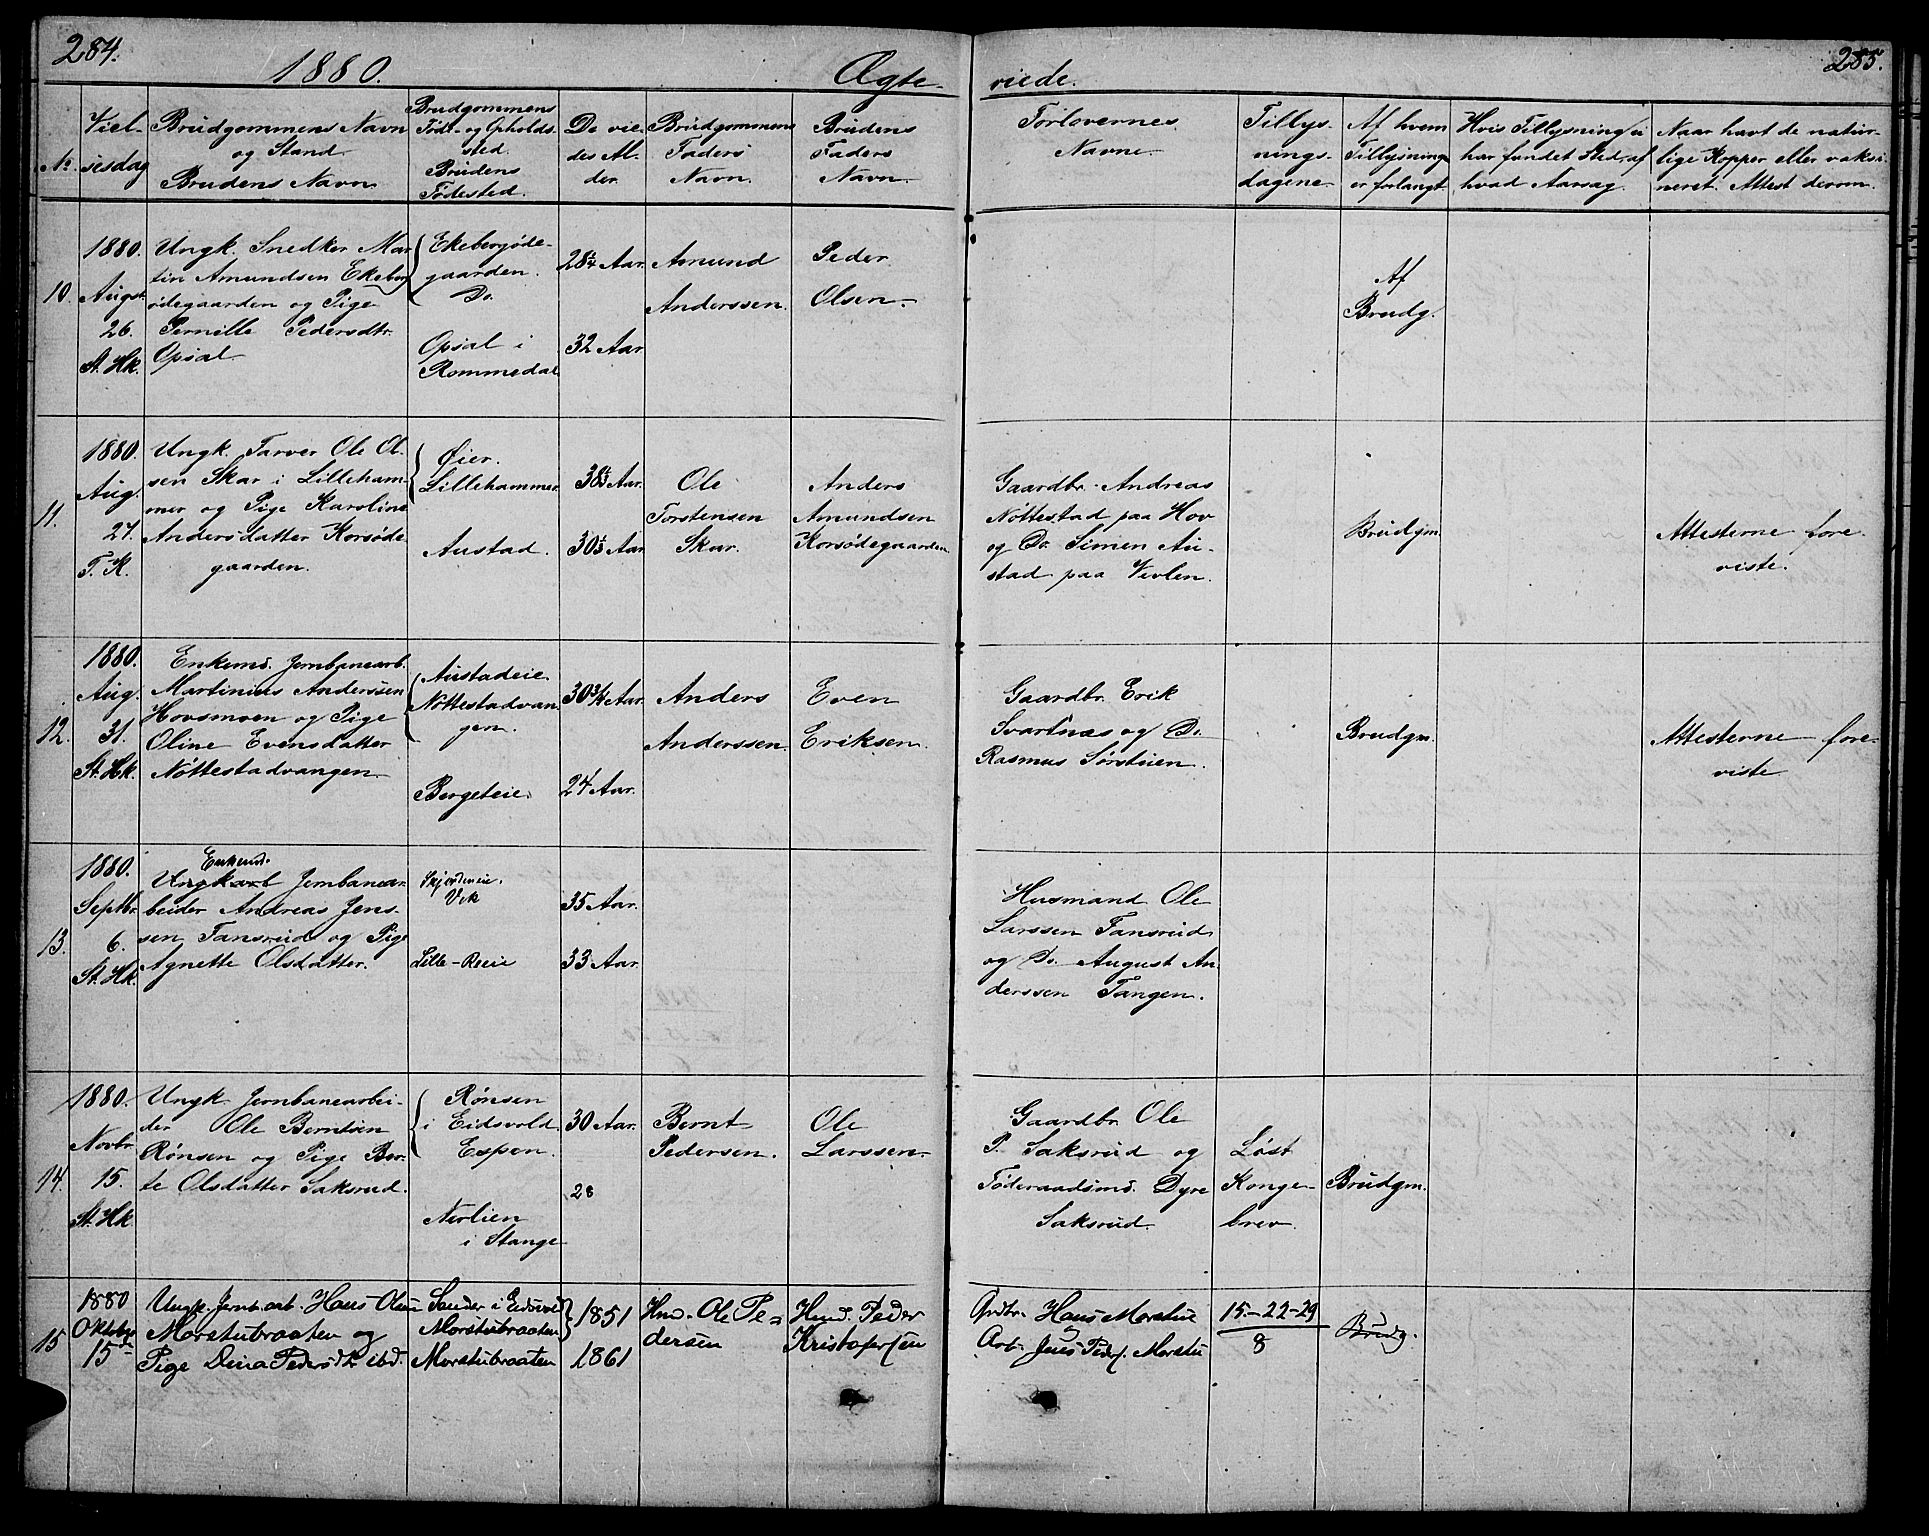 284.
1880.
Ægte
viede.
285.
No.
Viel-
sesdag
Brudgommens Navn
og Stand.
Brudens Navn
Brudgommens
Født- og Opholds-
sted.
Brudens
Fødested.
De vie-
des Al-
der.
Brudgommens
Faders
Navn.
Brudens
Faders
Navn.
Forlovernes
Navne.
Tillys-
nings-
dagene.
Af hvem
Tillysning
er forlangt.
Hvis Tillysning ei
har fundet Sted, af
hvad Aarsag.
Naar havt de natur-
lige Kopper eller vaksi-
neret. Attest derom.
10.
1880.
Augst.
26.
St. Hk.
Ungk. Snedker Mar
tin Amundsen Ekeberg
ødegaarden og Pige
Pernille Pedersdtr.
Opsal
Ekebergøde-
gaarden.
Do.
Opsal i
Rommedal
28¼ Aar.
32 Aar.
Amund
Anderssen.
Peder
Olsen.
Af
Brudg.
11.
1880.
Aug.
27.
T. K.
Ungk. Farver Ole Ol-
sen Skar i Lilleham-
mer og Pige Karoline
Andersdatter Korsøde-
gaarden.
Øier.
Lillehammer.
Austad.
38½ Aar.
30½ Aar.
Ole
Torstensen
Skar.
Anders
Amundsen
Korsødegaarden
Gaardbr. Andreas
Nøttestad paa Hov
og Do. Simen Au-
stad paa Vevlen.
Brudgm.
Attesterne fore-
viste.
12.
1880.
Aug.
31.
St. Hk.
Enkemd. Jernbanearb.
Martinius Anderssen
Hovsmoen og Pige
Oline Evensdatter
Nøttestadvangen
Austadeie
Nøttestadvan-
gen.
Bergeteie.
30¾ Aar.
24 Aar.
Anders
Anderssen.
Even
Eriksen.
Gaardbr. Erik
Svartnæs og Do.
Rasmus Sørstuen.
Brudgm.
Attesterne fore-
viste
13.
1880.
Septbr.
6.
St. Hk.
Enkemd.
Ungkarl Jernbanear-
beider Andreas Jens-
sen Fansrud og Pige
Agnette Olsdatter.
Skjerdeneie.
Vik
Lille-Reeie
35 Aar.
33 Aar.
Husmand Ole
Larssen Fansrud
og Do. August An
derssen Tangen.
14.
1880.
Novbr.
15.
St. Hk
Ungk. Jernbanearbei-
der Ole Berntsen
Rønsen og Pige Ber-
te Olsdatter Saksrud.
Rønsen
i Eidsvold.
Espen.
Nerlien
i Stange
30 Aar.
28
Bernt
Pedersen.
Ole
Larssen.
Gaardbr. Ole
P. Saksrud og
Føderaadsmd. Dyre
Saksrud
Løst
Konge-
brev.
Brudgm.
15
1880
Oktober
15
Ungk. Jernb.arb. Hans Olsen
Morstubraaten og
Pige Dina Pedersdtr. ibd.
Sander i Eidsvold
Morstubraaten
Morstubraaten
1851
1861
Hmd. Ole Pe-
dersen
Hmd. Peder
Kristofersen
Grdbr. Hans Morstue
Arb. Jens Peders. Morstu
15-22-29
8
Brudg.